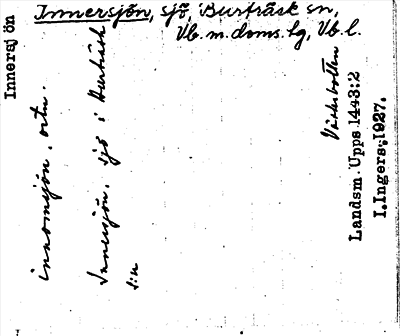 Innersjön, sjö, Burträsk sn,
Vb. m. doms. lg, Vb. l.
Innersjön
innomsjön, ortn.
Innersjön, sjö i Burträsk
s:n
Västerbotten
Landsm. Upps 1443:2
I. Ingers, 1927.